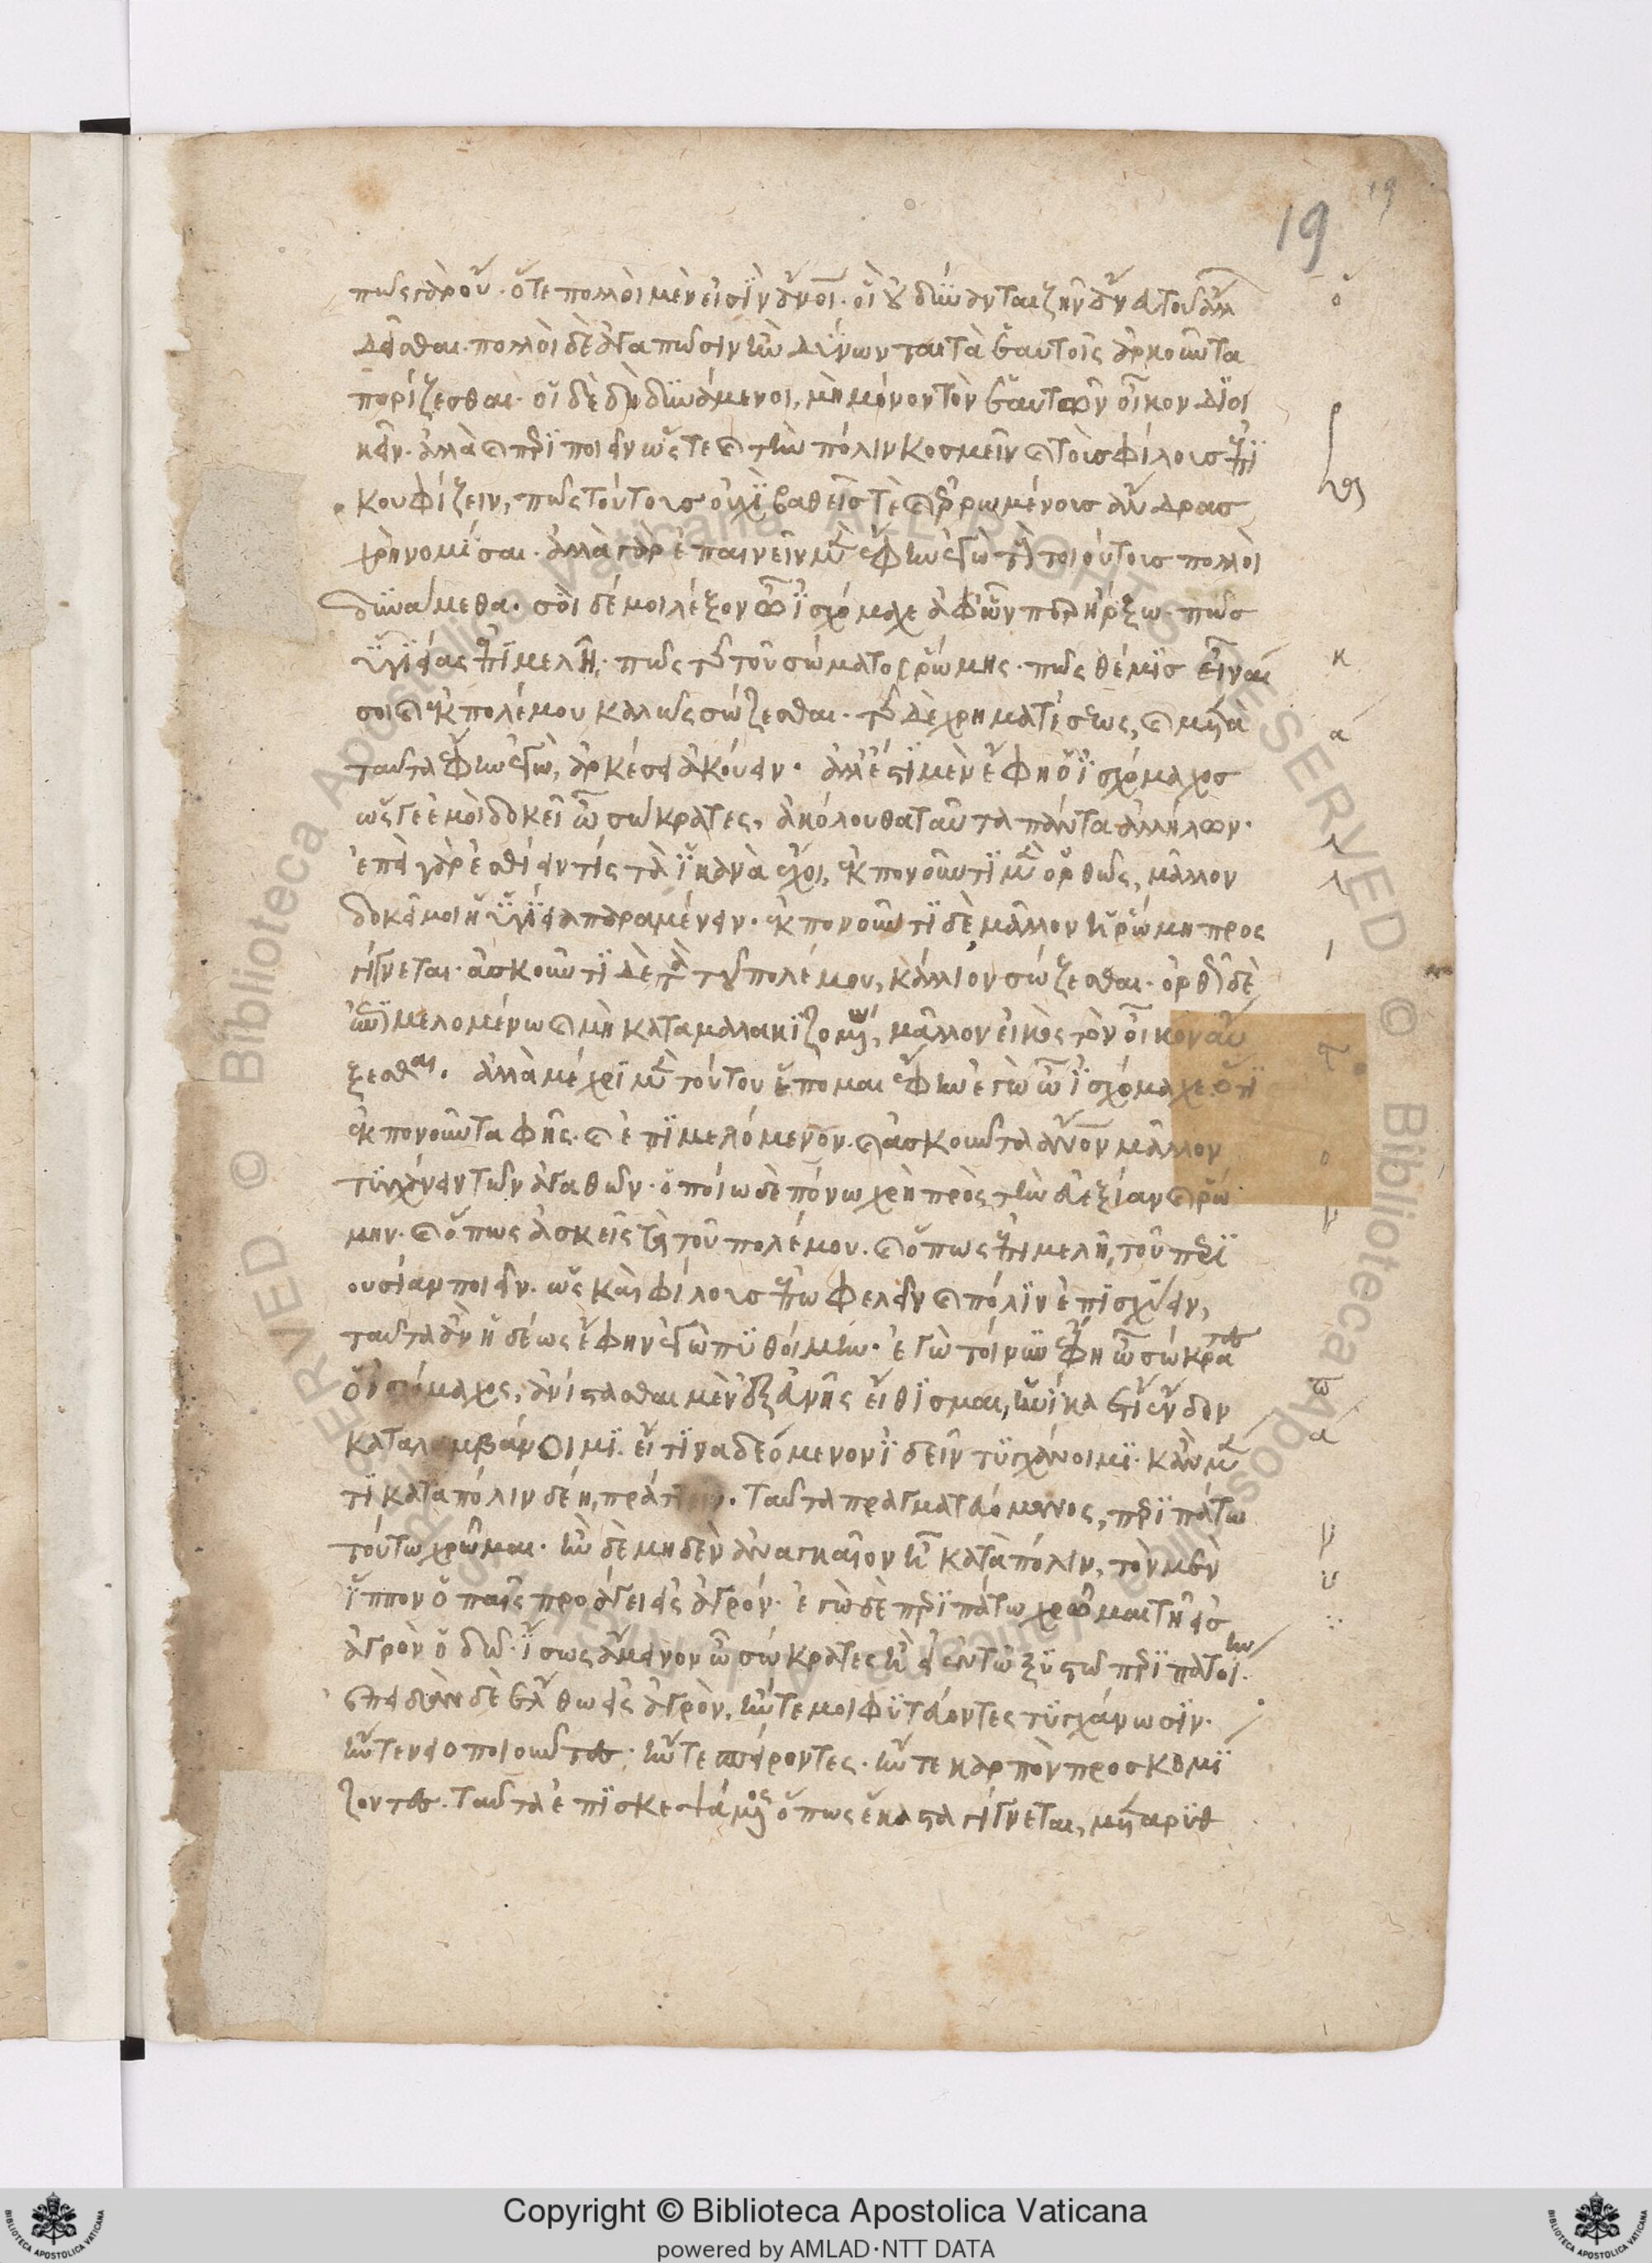 19
19
πῶς γὰρ οὔ. ὅτε πολλοὶ μὲν εἰσὶν ἄνοι. οἳ οὐ δύνανται ζῆν ἄνευ τοῦ ἄλλ
δεῖσθαι. πολλοὶ δὲ ἀγαπῶσιν ἢν δύνωνται τὰ ἑαυτοῖς ἀρκοῦντα
πορίζεσθαι. οἱ δὲ δὴ δυνάμενοι, μὴ μόνον τὸν ἑαυτῶν οἶκον διοι
κεῖν. ἀλλὰ καὶ περιποιεῖν ὥστε καὶ τὴν πόλιν κοσμεῖν καὶ τοὺς φίλους ἐπι
κουφίζειν, πῶς τούτους οὐχὶ βαθεῖς τε καὶ ἐρρωμένους ἄνδρας
χρὴ νομίσαι. ἀλλὰ γὰρ ἐπαινεῖν μὲν ἔφην ἐγὼ τοὺς τοιούτους πολλοὶ
δυνάμεθα. σὺ δέ μοι λέξον ὦ ἰσχόμαχε ἀφ' ὧνπερ ἤρξω. πῶς
ὑγιείας ἐπιμελῇ. πῶς τῆς τοῦ σώματος ῥώμης. πῶς θέμις εἶναί
σοι καὶ ἐκ πολέμου καλῶς σώζεσθαι. τῆς δὲ χρηματίσεως, καὶ μετὰ
ταῦτα ἔφην ἐγὼ, ἀρκέσει ἀκούειν. ἀλλ' ἔστι μὲν ἔφη ὁ ἰσχόμαχος
ὥς γε ἐμοὶ δοκεῖ ὦ σώκρατες, ἀκόλουθα ταῦτα πάντα ἀλλήλων.
ἐπεὶ γὰρ ἐσθίειν τίς τὰ ἱκανὰ ἔχοι, ἐκπονοῦντι μὲν ὀρθῶς, μᾶλλον
δοκεῖ μοι ἡ ὑγίεια παραμένειν. ἐκπονοῦντι δὲ μᾶλλον ἡ ῥώμη προς
γίγνεται. ἀσκοῦντι δὲ τὰ τοῦ πολέμου, κάλλιον σώζεσθαι. ὀρθῶς δὲ
ἐπιμελομένω καὶ μὴ καταμαλακιζομένω, μᾶλλον εἰκὸς τὸν οἶκον αὔ
ξεσθαι. ἀλλὰ μέχρι μὲν τούτου ἕπομαι ἔφην ἐγὼ ὦ ἰσχόμαχε. ὅτι
ἐκπονοῦντα φῂς. καὶ ἐπιμελόμενον. καὶ ἀσκοῦντα ἄνον μᾶλλον
τυγχάνειν τῶν ἀγαθῶν. ὁποίω δὲ πόνω χρῆ πρὸς τὴν εὐεξίαν καὶ ῥώ
μην. καὶ ὅπως ἀσκεῖς τὰ τοῦ πολέμου. καὶ ὅπως ἐπιμελῇ, τοῦ περι
ουσίαν ποιεῖν. ὡς καὶ φίλους ἐπωφελεῖν καὶ πόλιν ἐπισχύειν,
ταῦτα ἂν ἡδέως ἔφην ἐγὼ πυθοίμην. ἐγὼ τοίνυν ἔφη ὦ σώκρατες
ὁ ἰσχόμαχος, ἀνίστασθαι μὲν ἐξ εὐνῆς εἴθισμαι, ἡνίκα ἔτι ἔνδον
καταλαμβάνοιμι. εἴ τινα δεόμενον ἰδεῖν τυγχάνοιμι. κἂν μὲν
τι κατὰ πόλιν δέῃ, πράττειν. ταῦτα πραγματευόμενος, περιπάτω
τούτω χρῶμαι. ἢν δὲ μηδὲν ἀναγκαῖον ᾖ κατὰ πόλιν, τὸν μὲν
ἵππον ὁ παῖς προάγει εἰς ἀγρόν. ἐγὼ δὲ περιπάτω χρῶμαι τῇ εἰς
ἀγρὸν ὁδῶ. ἴσως ἄμεινον ὦ σώκρατες ἢ εἰ ἐν τῶ ξυστῶ περιπατοίην.
ἐπειδὰν δὲ ἔλθω εἰς ἀγρὸν, ἤν τέ μοι φυτεύοντες τυγχάνωσιν.
ἤν τε νειοποιοῦντες. ἤν τε σπείροντες. ἤν τε καρπὸν προσκομί
ζοντες. ταῦτα ἐπισκεψάμενος ὅπως ἕκαστα γίγνεται, μεταρυθ
Copyright © Biblioteca Apostolica Vaticana
powered by AMLAD·NTT DATA